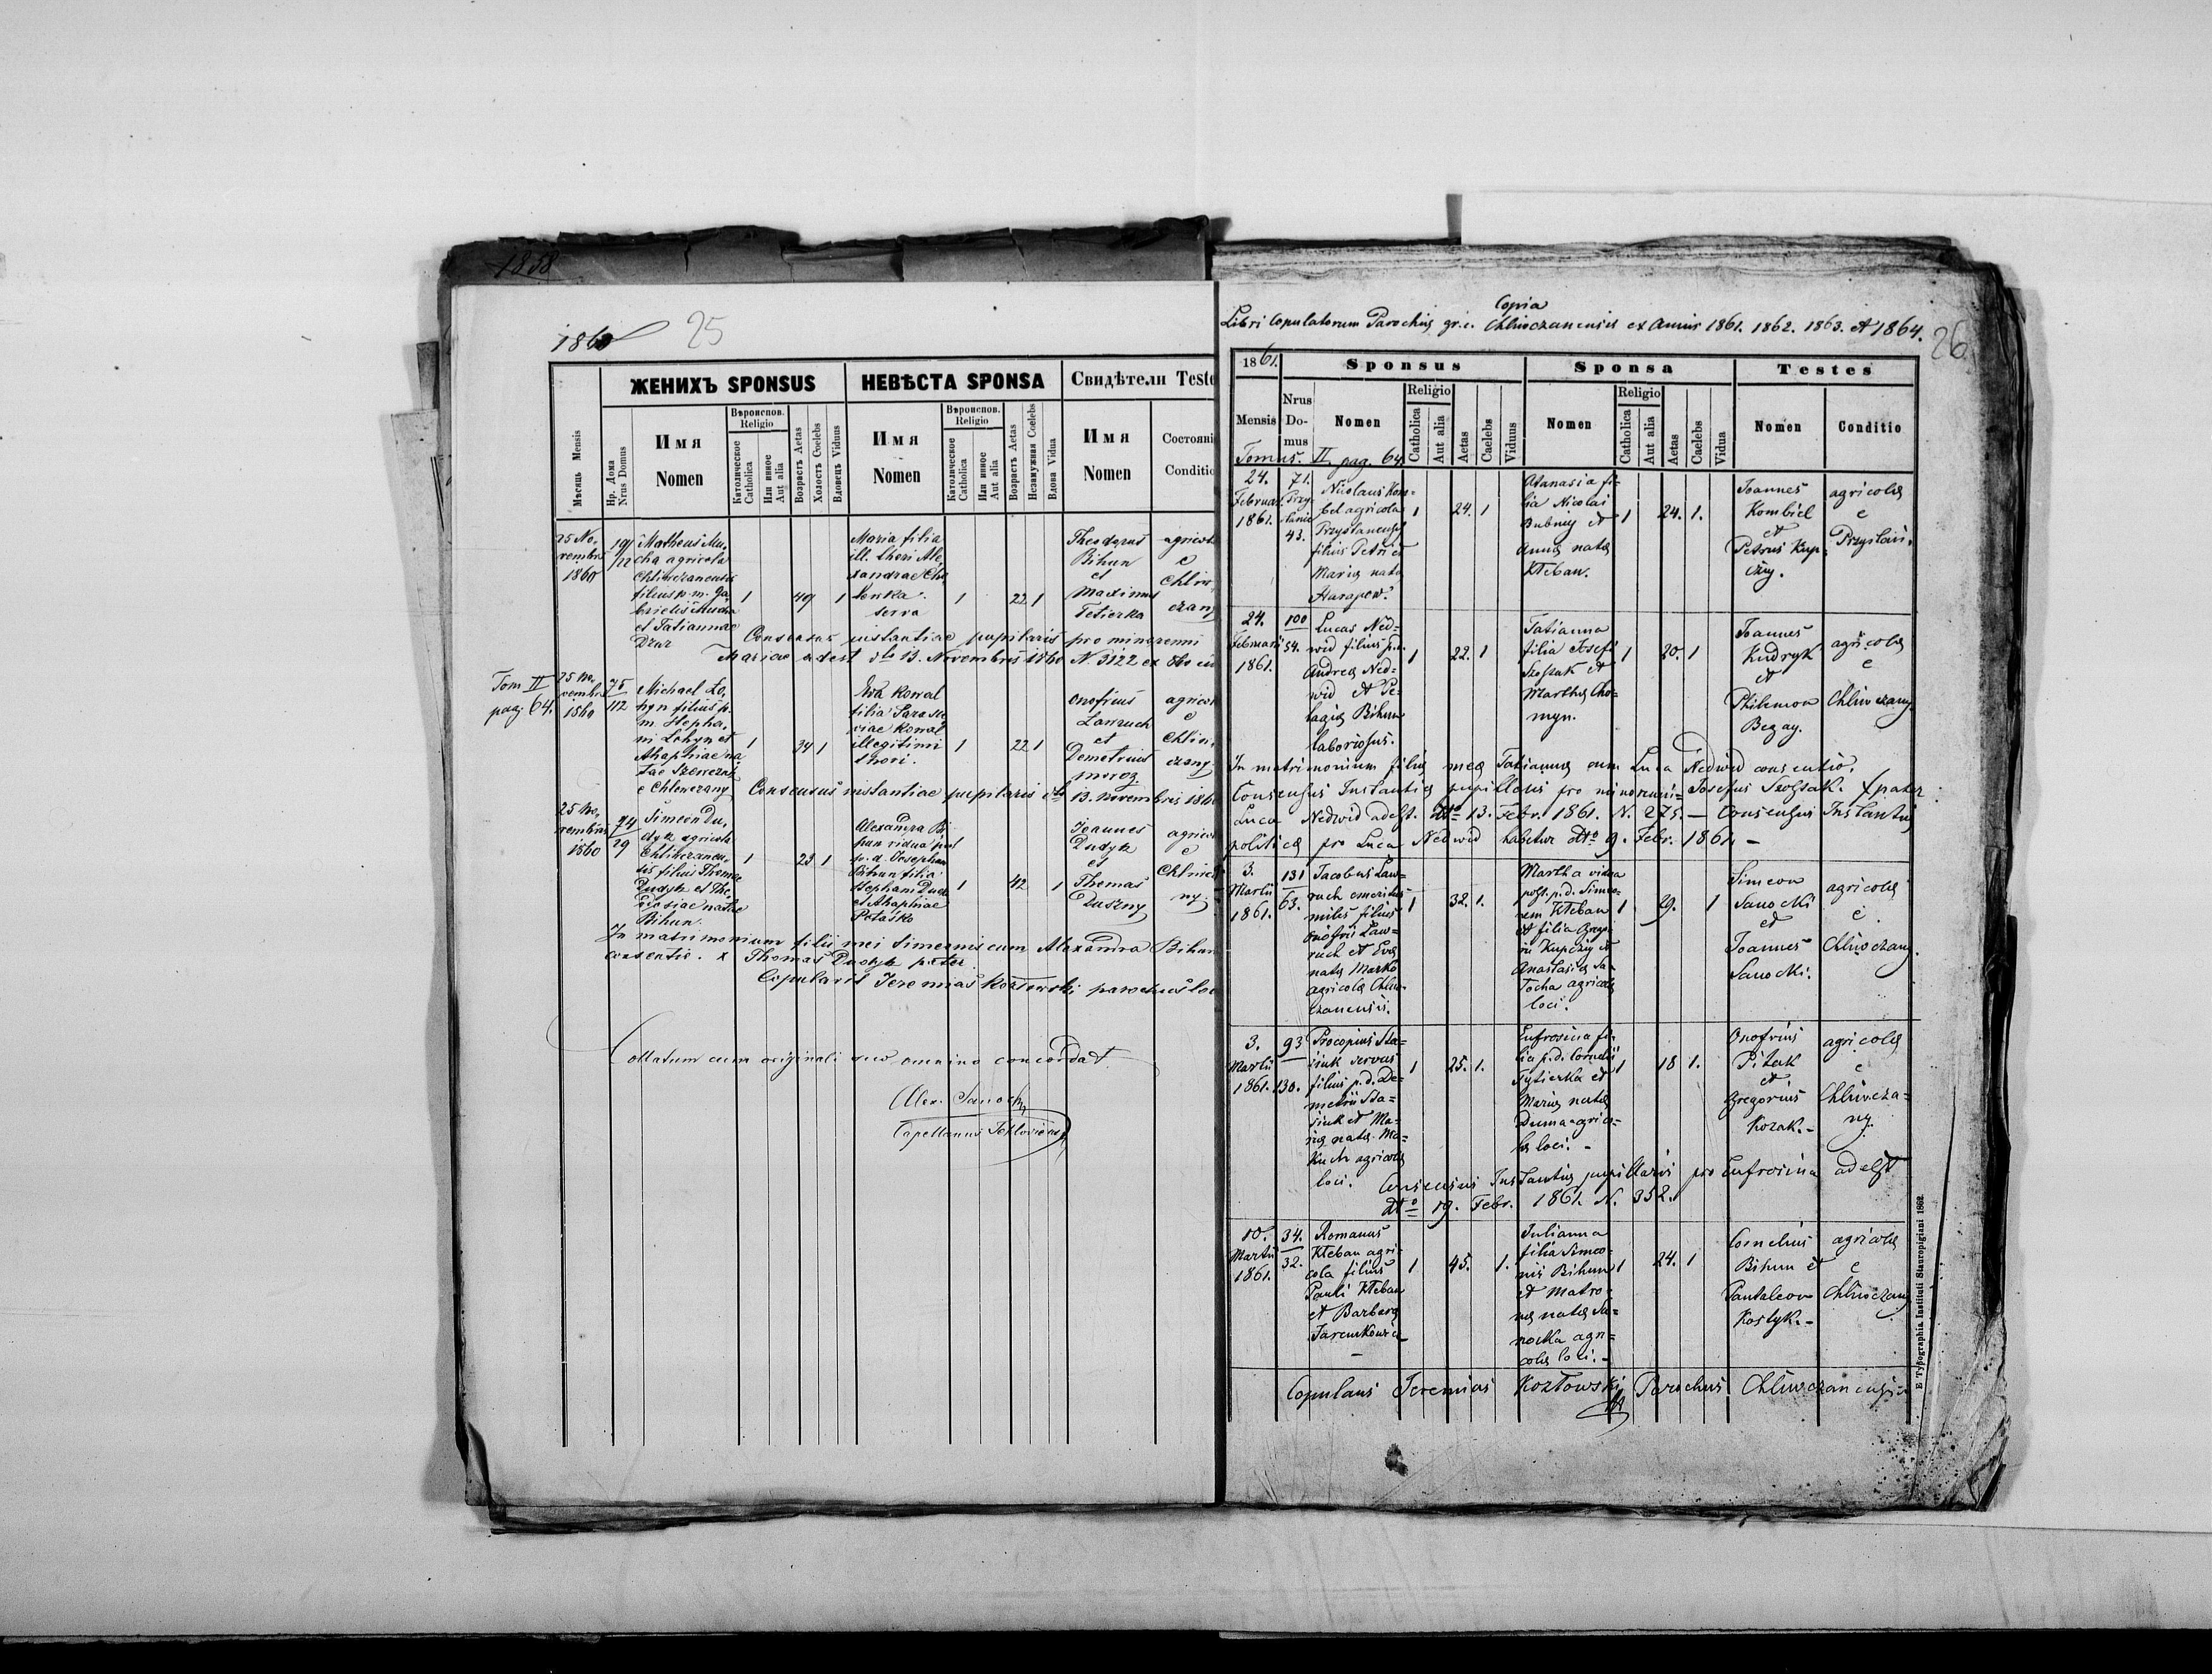 1858
1860
25
ЖЕНИХЪ SPONSUS
НЕВѢСТА SPONSA
Свидѣтели Teste
Мѣсяць Mensis
Нр. Дома
Nrus Domus
Имя
Nomen
Вѣроиспов.
Religio
Католическое
Catholica
Или инное
Aut alia
Возрастъ Aetas
Холостъ Coelebs
Вдовецъ Viduus
Имя
Nomen
Вѣроиспов.
Religio
Католическое
Catholica
Или инное
Aut alia
Возрастъ Aetas
Незамужная Coelebs
Вдова Vidua
Имя
Nomen
Состояни
Conditio
25 No-
vembris
1860
19/12
Matheus Mu-
cha agricola
Chliwczanensis
filius p. m. Ga-
brielis Mucha
et Tatiannae
1
49
1
Maria filia
ill. thori Ale-
xandrae
serva
1
22
1
Theodorus
Bihun
et
Maximus
Tetierka
agricol
e
Chliw
czany
Consensus instantiae pupilaris pro minorenni
Mariae adest dto 13. Novembris 1860 N. 3122
Tom II
pag. 64.
25 No-
vembris
1860
75
112
Michael Lo-
hyn filius p.
m. Stepha-
ni Lohyn et
Ahaphiae na-
tae
e Chliwczany
1
34
1
Eva Kowal
filia Paraske-
viae Kowal
illegitimi
thori.
1
22
1
Onofrius
Lawruch
et
Demetrius
Moroz
agricol
e
Chliw-
czany
Consensus instantiae pupilaris dto 13. Novembris 1860
25 No-
vembris
1860
74
29
Simeon Du-
dyk agricola
Chliwczanen-
sis filius Thomae
Dudyk et The-
dosiae natae
Bihun.
1
23
1
Alexandra Bi-
hun vidua post
p. d. Josephum
Bihun filia
Stephani Duda
et Ahaphiae
Petasko
1
42
1
Joannes
Dudyk
et
Thomas
Duszny
agricol
e
Chliwcza
ny
In matrimonium filii mei Simeonis cum Alexandra Bihun
consentio. x Thomas Dudyk pater
Copulavit Jeremias Kozłowski parochus loci
Collatum cum originali quo omnino concordat.
Alex. Sanocky
Capellanus
Copia
Libri Copulatorum Parochię gr. c. Chliwczanensis ex Annis 1861. 1862. 1863. et 1864.
26
1861.
Sponsus
Sponsa
Testes
Mensis
Nrus
Do-
mus
Nomen
Religio
Catholica
Aut alia
Aetas
Caelebs
Viduus
Nomen
Religio
Catholica
Aut alia
Aetas
Caelebs
Vidua
Nomen
Conditio
Tomus. II. pag. 64
24.
Februar.
1861.
71.
Przy-
stanie
43.
Nicolaus Kom-
bel agricola
Przystanensis
filius Petri et
Marię natę
Harapow.
1
24.
1
Atanasia fi-
lia Nicolai
Bubniy et
Annę natę
Kłeban.
1
24.
1.
Joannes
Kombiel
et
Petrus Kup-
czy.
agricolę
e
Przystań.
24.
Februarii
1861.
100
54.
Lucas Ned-
wid filius p.d.
Andreę Ned-
wid et Pe-
lagię Bihun
laboriosus.
1
22.
1
Tatianna
filia Josefi
Szostak et
Marthę Cho-
myn.
1
20.
1
Joannes
Kudryk
et
Philemon
Begay.
agricolę
e
Chliwczany.
In matrimonium filię meę Tatiannę cum Luca Nedwid consentio.
Consensus Instantię pupillaris pro minorenni Josefus Szostak. x pater
Luca Nedwid adest. dto 13. Febr. 1861. N. 275. — Consensus Instantię
politicę pro Luca Nedwid habetur dto 9. Febr. 1861. —
3.
Martii
1861.
131
63.
Jacobus Law-
ruch emeritus
miles filius
Onofrii Law-
ruch et Evę
natę Marko
agricolę Chliw-
czanensis.
1
32.
1.
Martha vidua
post. p. d. Simeo-
nem Kłeban
et filia Grego-
rii Kupczy et
Anastasię Sa-
łocha agricolę
loci.
1
29.
1
Simeon
Sanocki
et
Joannes
Sanocki.
agricolę
e
Chliwczany.
3.
Martii
1861.
93
130.
Procopius Sta-
siuk servus
filius p. d. De-
metrii Sta-
siuk et Ma-
rię natę Ma-
kuch agricolę
loci.
1
25.
1.
Eufrosina fi-
lia p. d. Cornelii
Tytierka et
Marię natę
Duma agrico-
lę loci. -
1
18
1.
Onofrius
Pitak
et
Gregorius
Kozak. -
agricolę
e
Chliwcza-
ny.
Consensus Instantię pupillaris pro Eufrosina adest
dto 19. Febr. 1861. N. 352.
10.
Martii
1861.
34.
32.
Romanus
Kłeban agri-
cola filius
Pauli Kłeban
et Barbarę
1
45.
1.
Julianna
filia Simeo-
nis Bihun
et Matro-
nę natę Sa-
nocka agri-
colę loci. -
1
24.
1
Cornelius
Bihun et
Pantaleon
Kostyk. -
agricolę
e
Chliwczany
Copulans Jeremias Kozłowski Parochus Chliwczanensis
E Typographia Instituti Stauropigiani 1862.